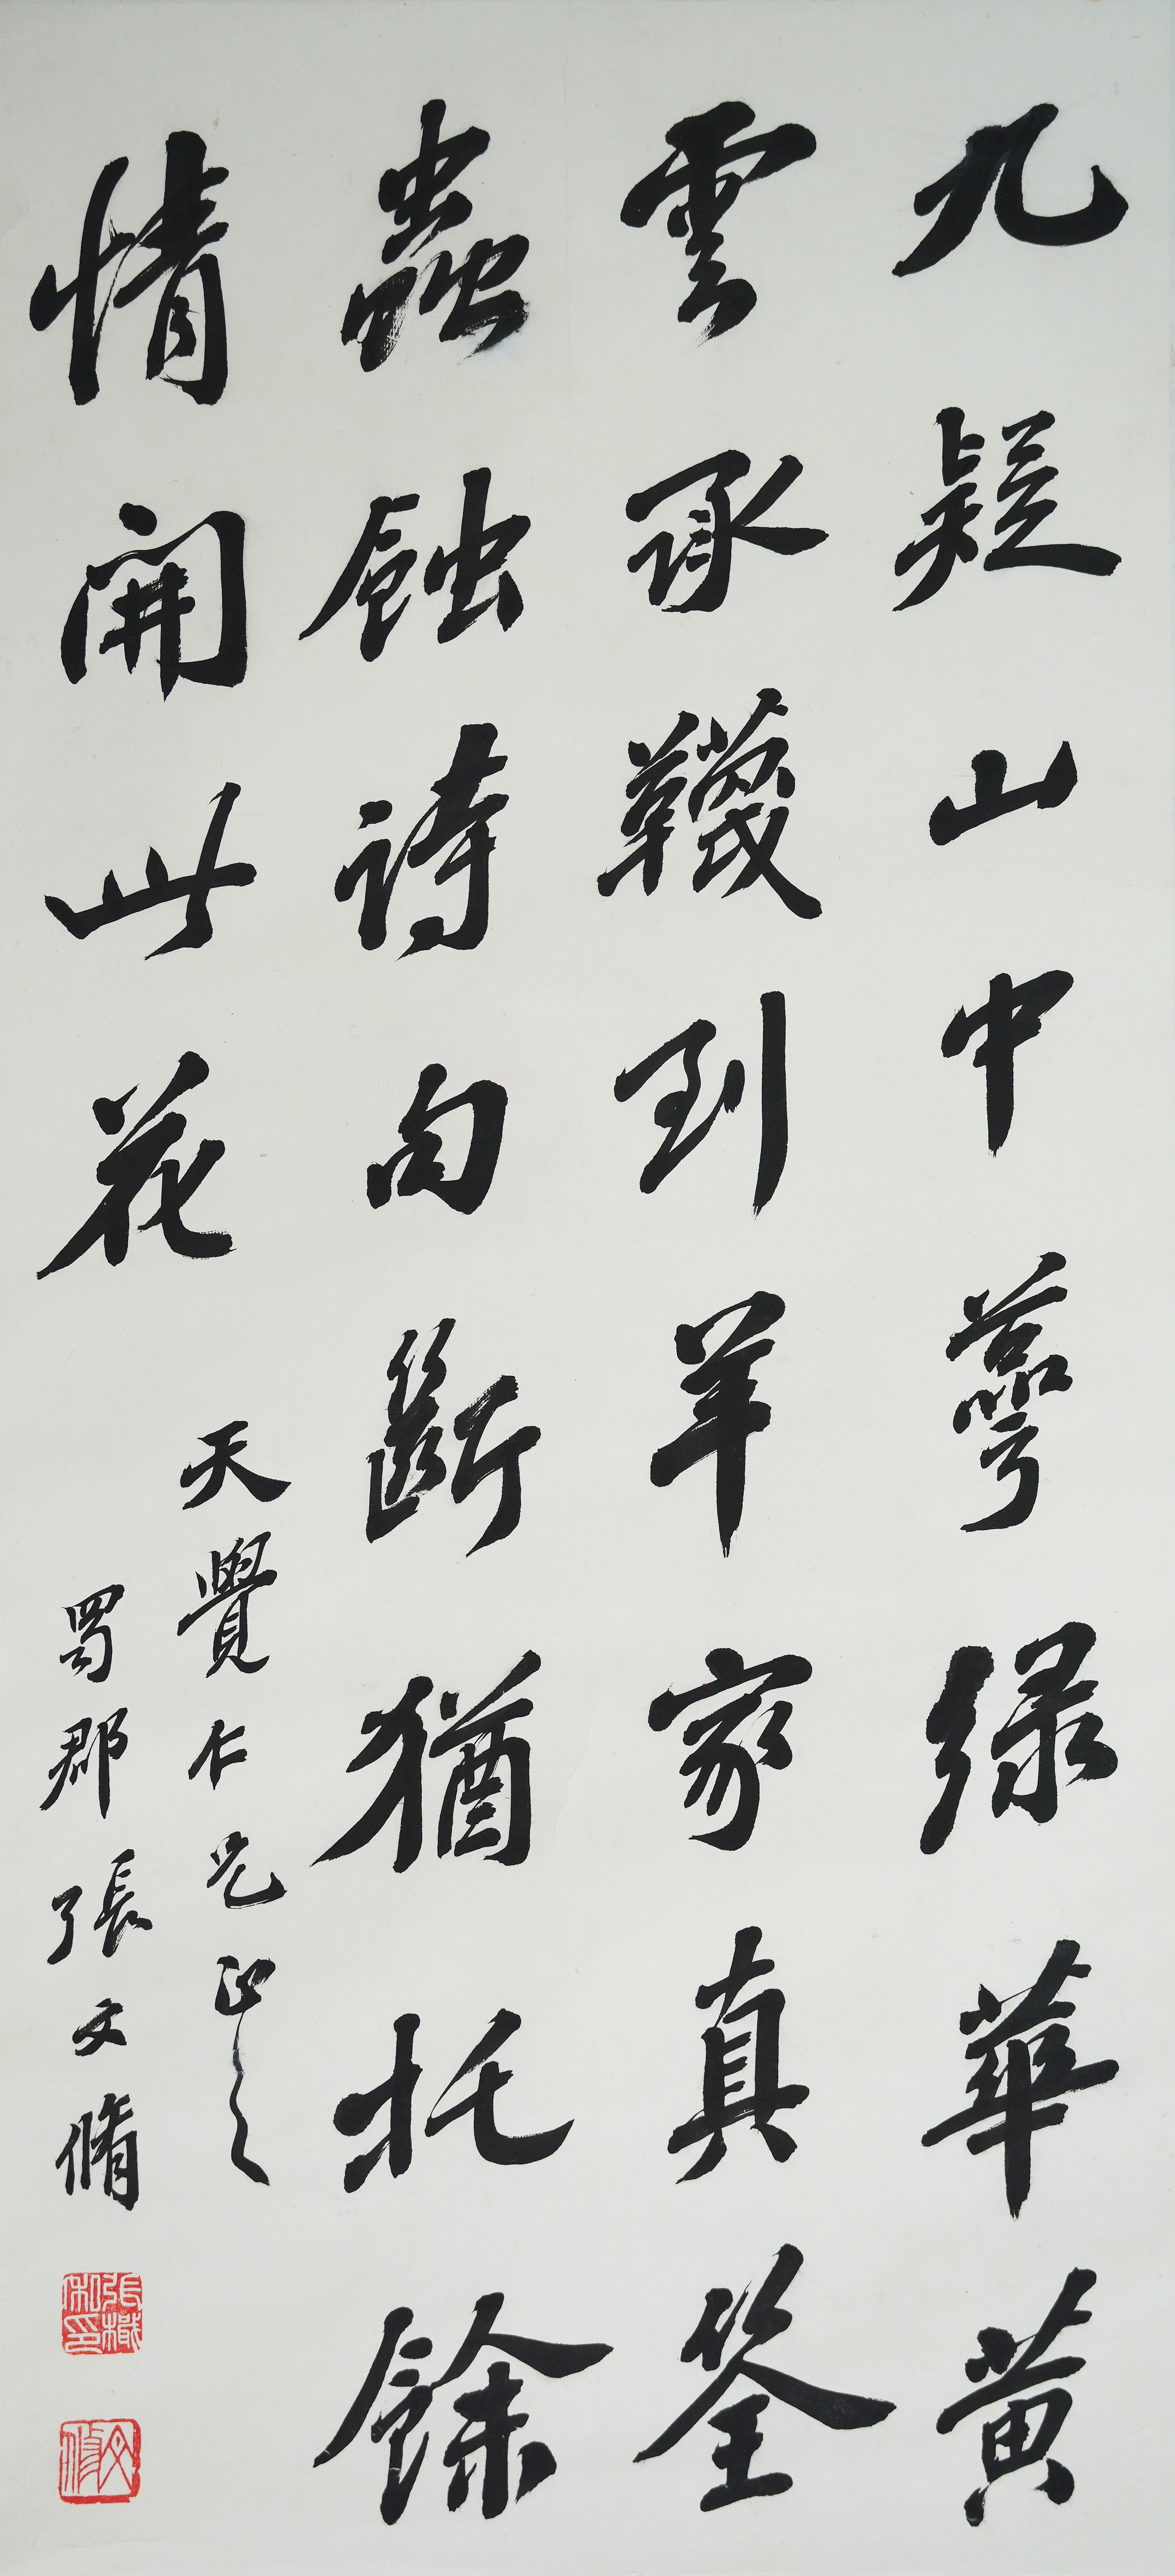 九疑山中蕚綠華黃
雲承韈到羊家真筌
蟲蝕詩句斷猶托餘
情開此花
天覺仁兄正之
蜀郡張文脩
張私印
文修